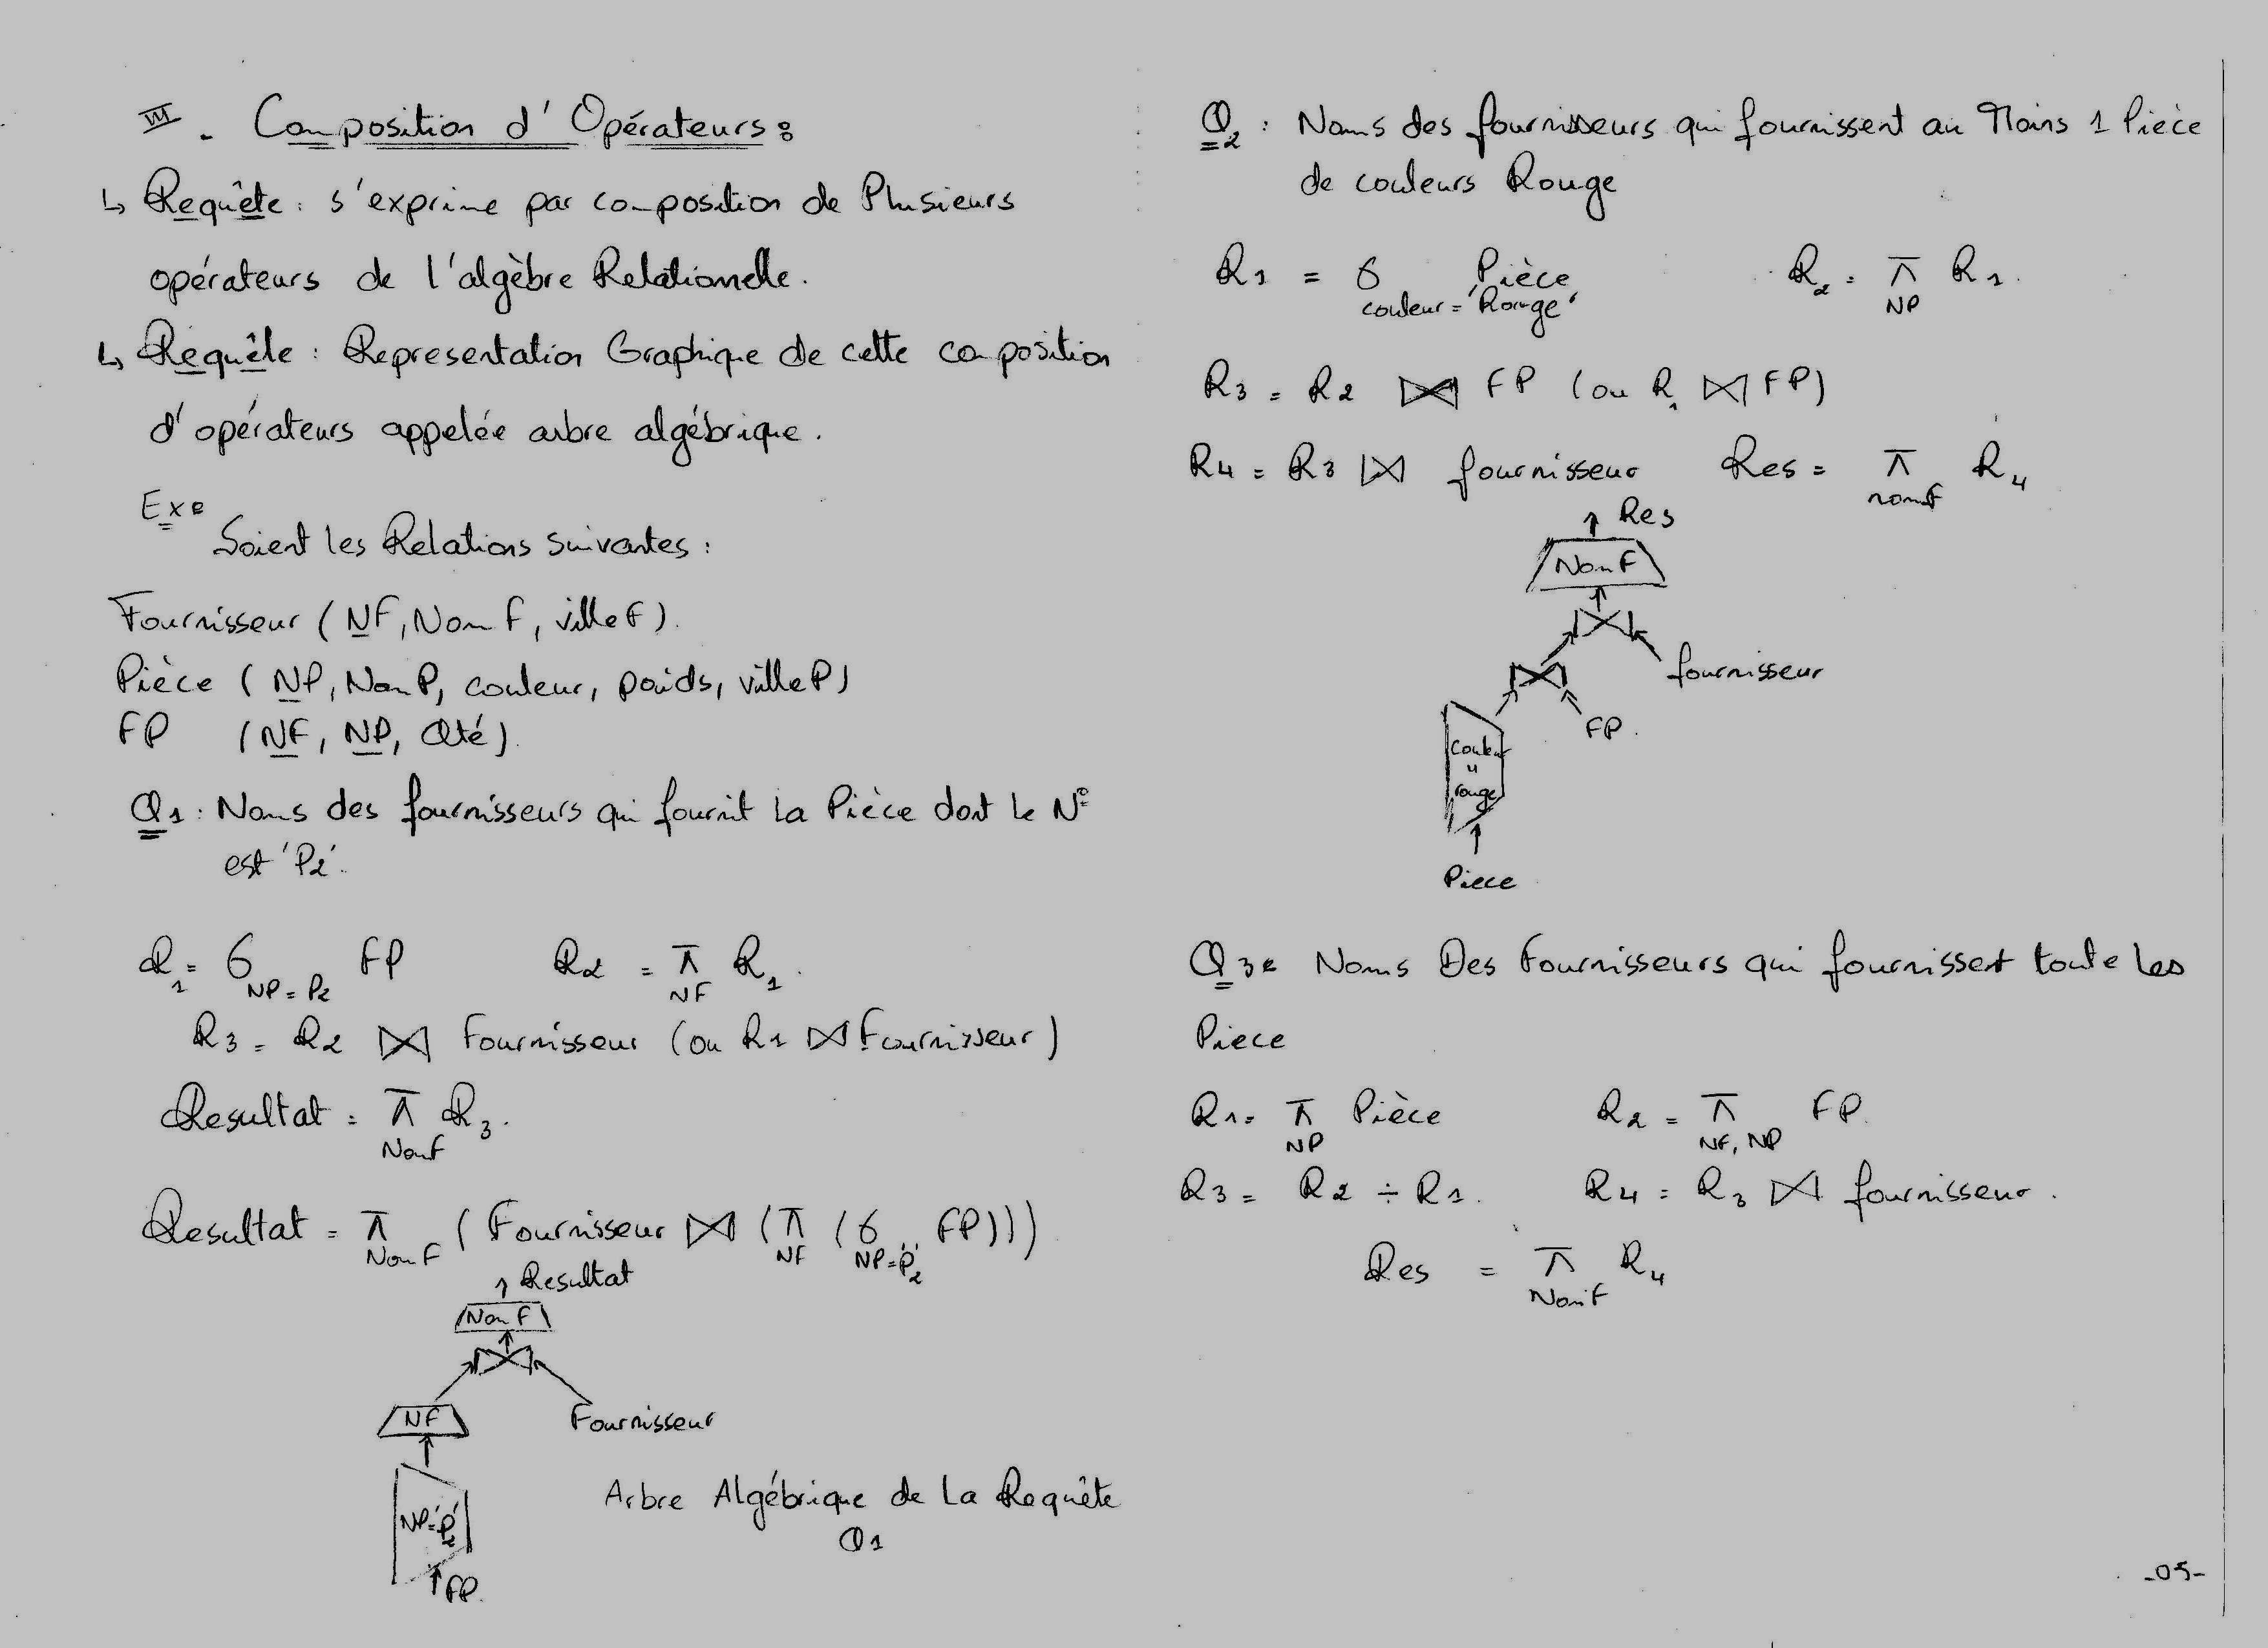 III - Composition d'Opérateurs :
↳ Requête : s'exprime par composition de Plusieurs
opérateurs de l'algèbre Relationnelle.
↳ Requête : Representation Graphique de cette composition
d'opérateurs appelée arbre algébrique.
Exe
Soient les Relations suivantes :
Fournisseur (NF, NomF, villeF).
Pièce (NP, NomP, couleur, poids, villeP)
FP (NF, NP, Qté).
Q1 : Noms des fournisseurs qui fournit la Pièce dont le N°
est 'P2'.
R1 = σ NP=P2 FP R2 = π NF R1.
R3 = R2 ⋈ Fournisseur (ou R1 ⋈ Fournisseur)
Resultat = π NomF R3.
Resultat = π NomF (Fournisseur ⋈ (π NF (σ NP='P2' FP)))
Resultat
NomF
⋈
NF
Fournisseur
NP='P2'
FP.
Arbre Algébrique de La Requête
Q1
Q2 : Noms des fournisseurs qui fournissent au Moins 1 Pièce
de couleurs Rouge
R1 = σ couleur='Rouge' Pièce R2 = π NP R1.
R3 = R2 ⋈ FP (ou R1 ⋈ FP)
R4 = R3 ⋈ fournisseur Res = π nomF R4
Res
NomF
⋈
fournisseur
⋈
FP.
Couleur
=
rouge
Piece
Q3 : Noms Des Fournisseurs qui fournissent toute les
Piece
R1 = π NP Pièce R2 = π NF, NP FP.
R3 = R2 ÷ R1. R4 = R3 ⋈ fournisseur.
Res = π NomF R4
-05-